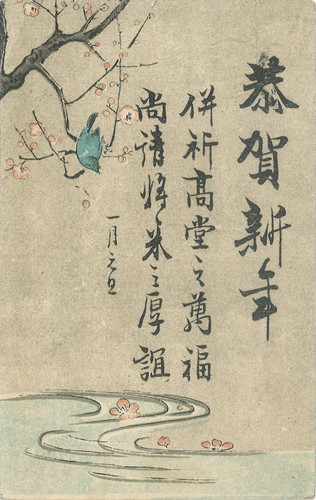 恭賀新年
併祈高堂之萬福
尚請将来之厚誼
一月元旦